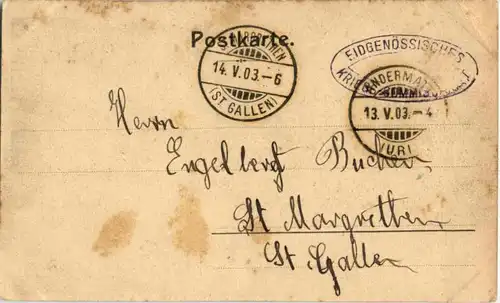 Postkarte.
14. V. 03. - 6
(ST. GALLEN)
EIDGENÖSSISCHES
ANDERMATT
13. V. 03. - 4
(URI)
Herrn
Engelbert Bucher
St Margrethen
St. Gallen